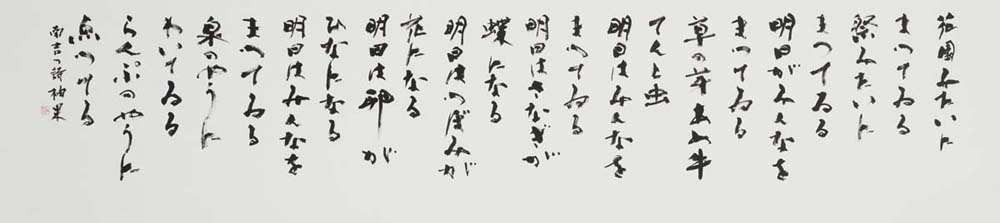 花園みたいに
まつてゐる
祭みたいに
まつてゐる
明日がみんなを
まつてゐる
草の芽あめ牛
てんと虫
明日はみんなを
まつてゐる
明日はさなぎが
蝶になる
明日はつぼみが
花になる
明日は卵が
ひなになる
明日はみんなを
まつてゐる
泉のやうに
わいてゐる
らんぷのやうに
点つてる
南吉の詩